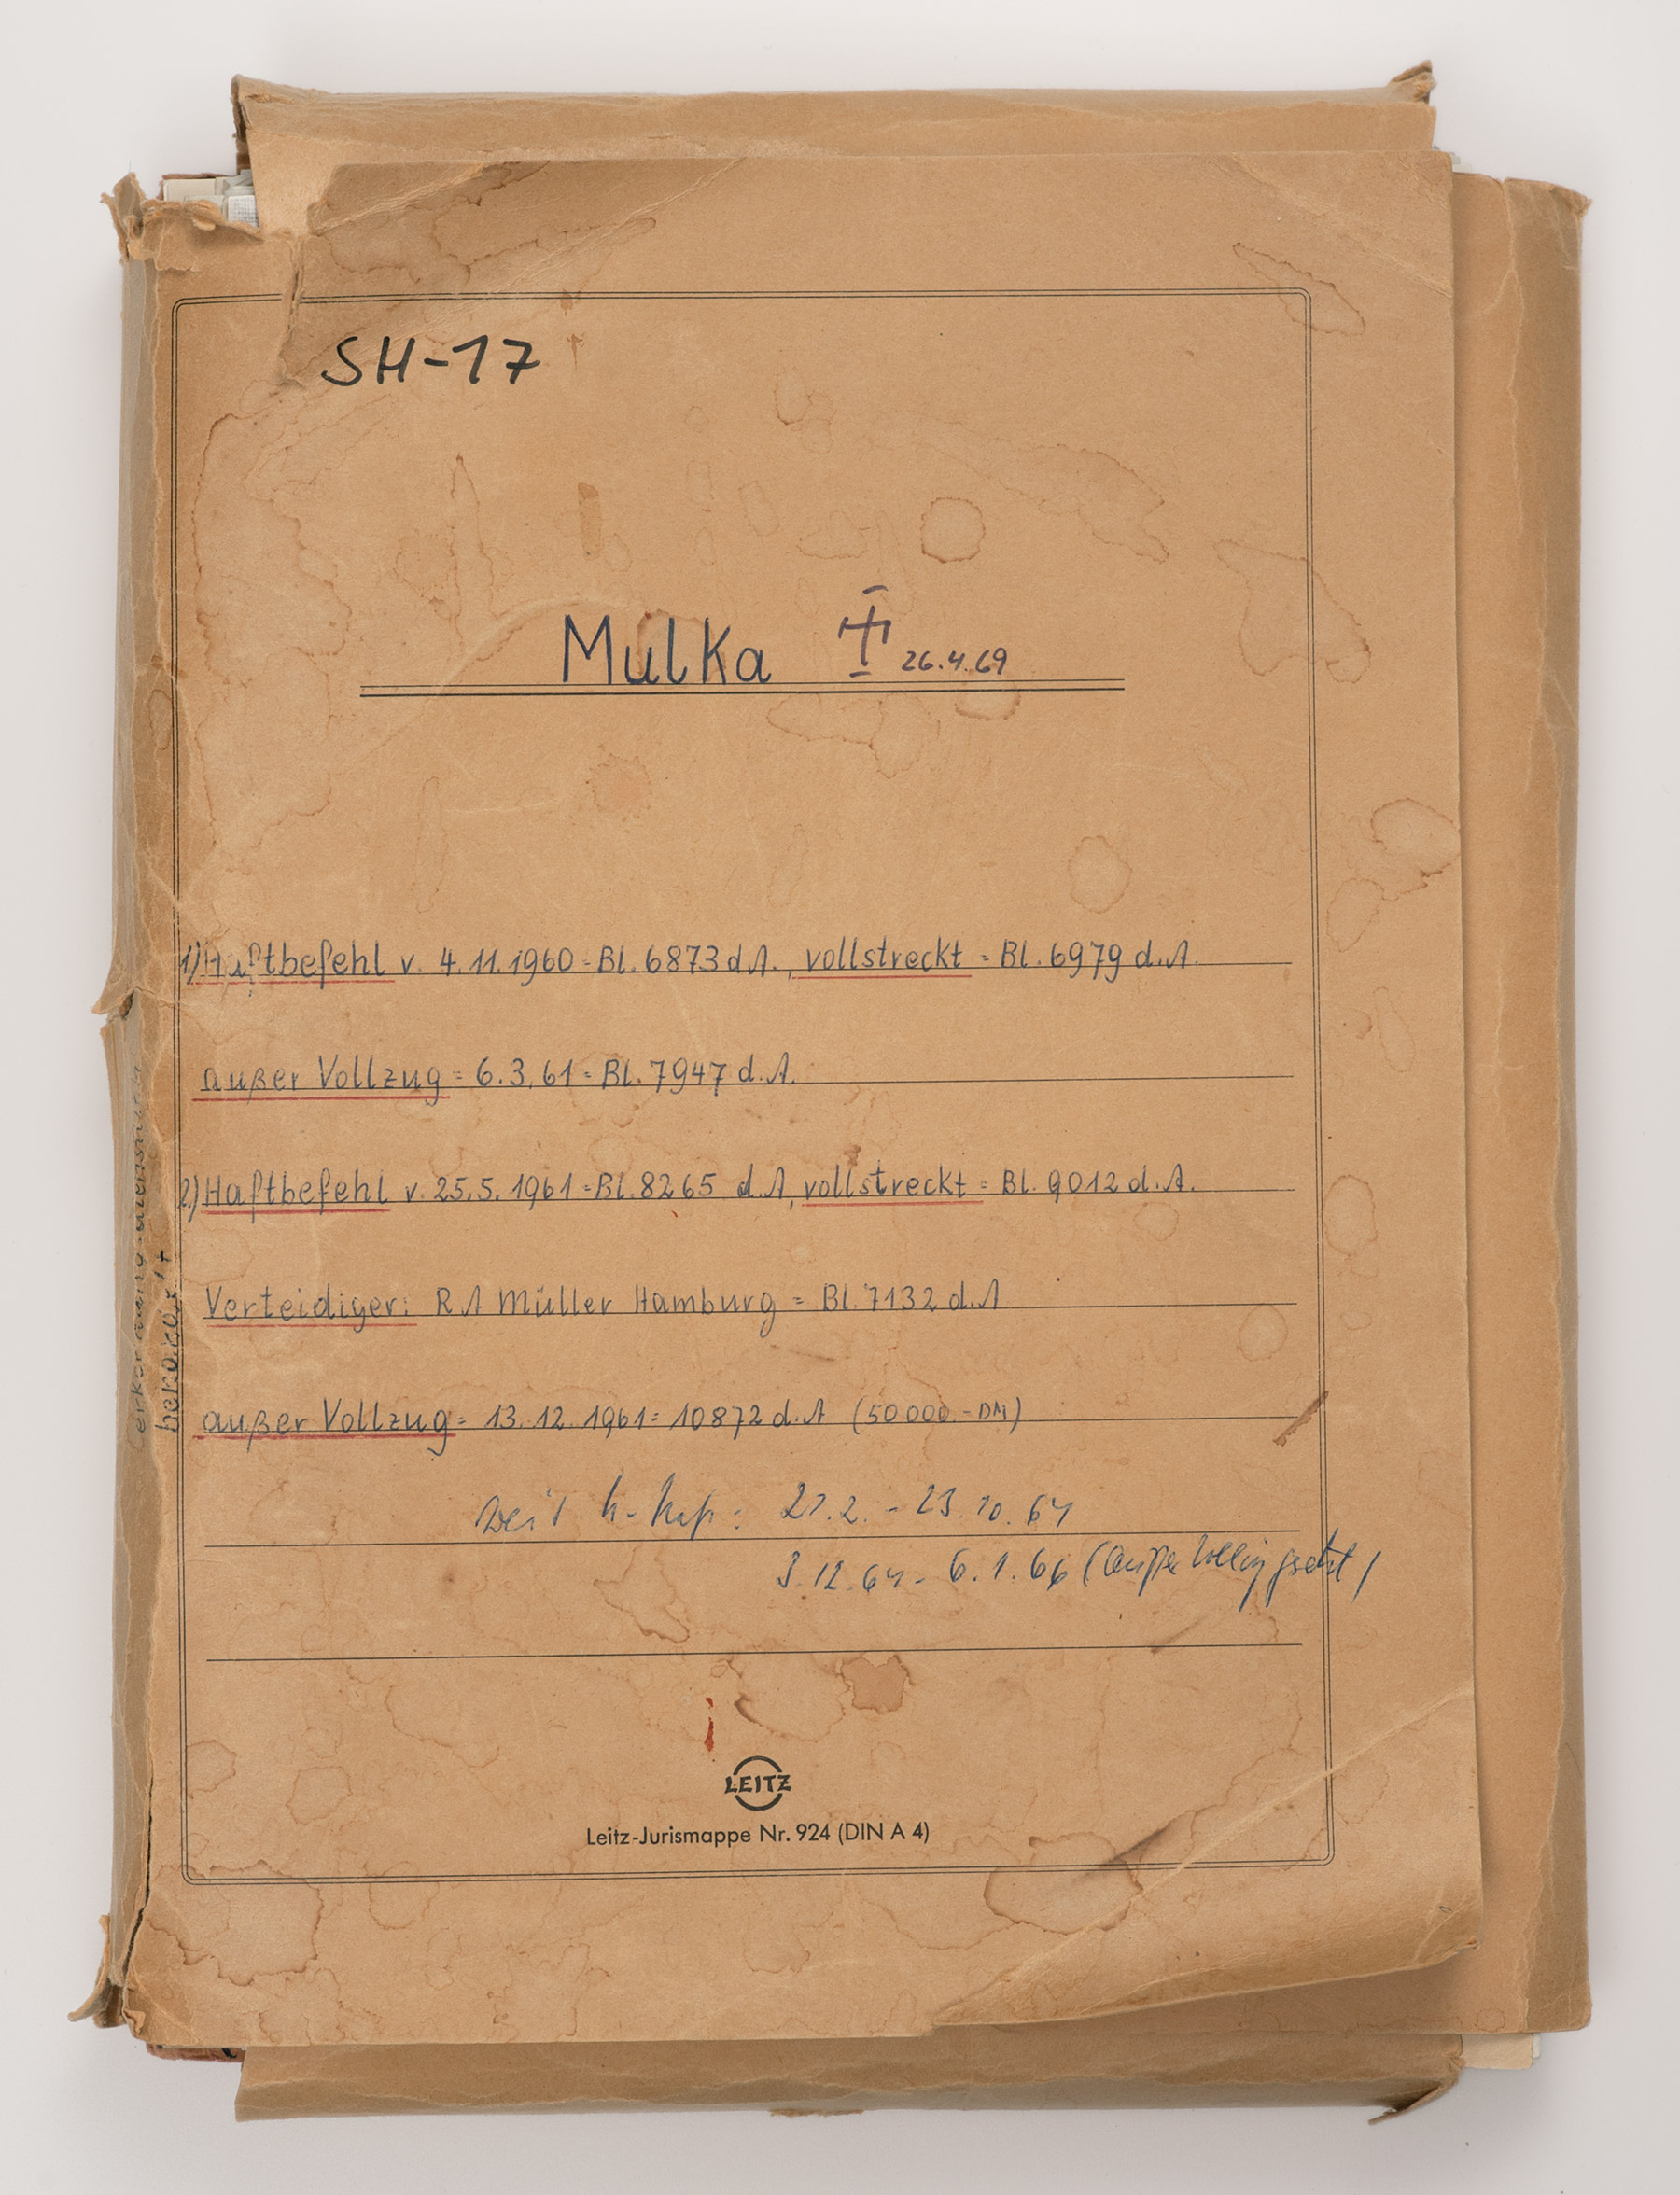 SH-17
Mulka 26.4.69
1) Haftbefehl v. 4.11.1960 = Bl. 6873 d.A., vollstreckt = Bl. 6979 d.A.
außer Vollzug = 6.3.61 = Bl. 7947 d.A.
2) Haftbefehl v. 25.5.1961 = Bl. 8265 d.A, vollstreckt = Bl. 9012 d.A.
Verteidiger: RA Müller Hamburg = Bl. 7132 d.A
außer Vollzug = 13.12.1961 = 10872 d.A (50000.-DM)
- 23.10.64
3.12.64 - 6.1.66 (außer Vollzug gesetzt)
LEITZ
Leitz-Jurismappe Nr. 924 (DIN A 4)